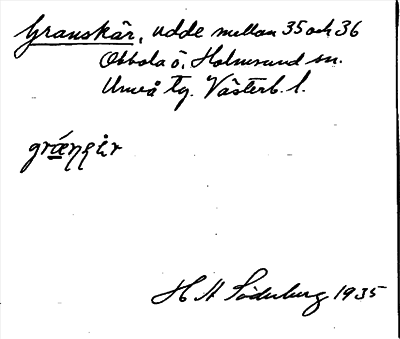 Granskär, udde mellan 35 och 36
Obbola ö, Holmsund sn.
Umeå tg. Västerb. l.
H A Söderberg 1935